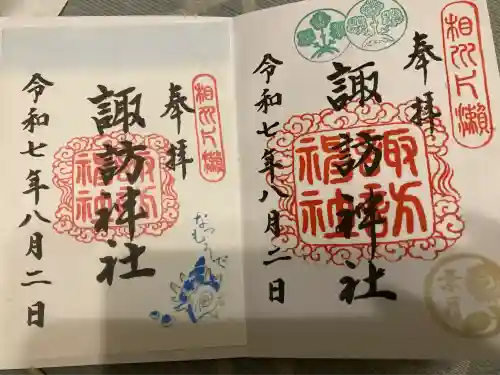 奉拝
相州片瀬
諏訪神社
諏訪神社
令和七年八月二日
奉拝
相州片瀬
諏訪神社
諏訪神社
令和七年八月二日